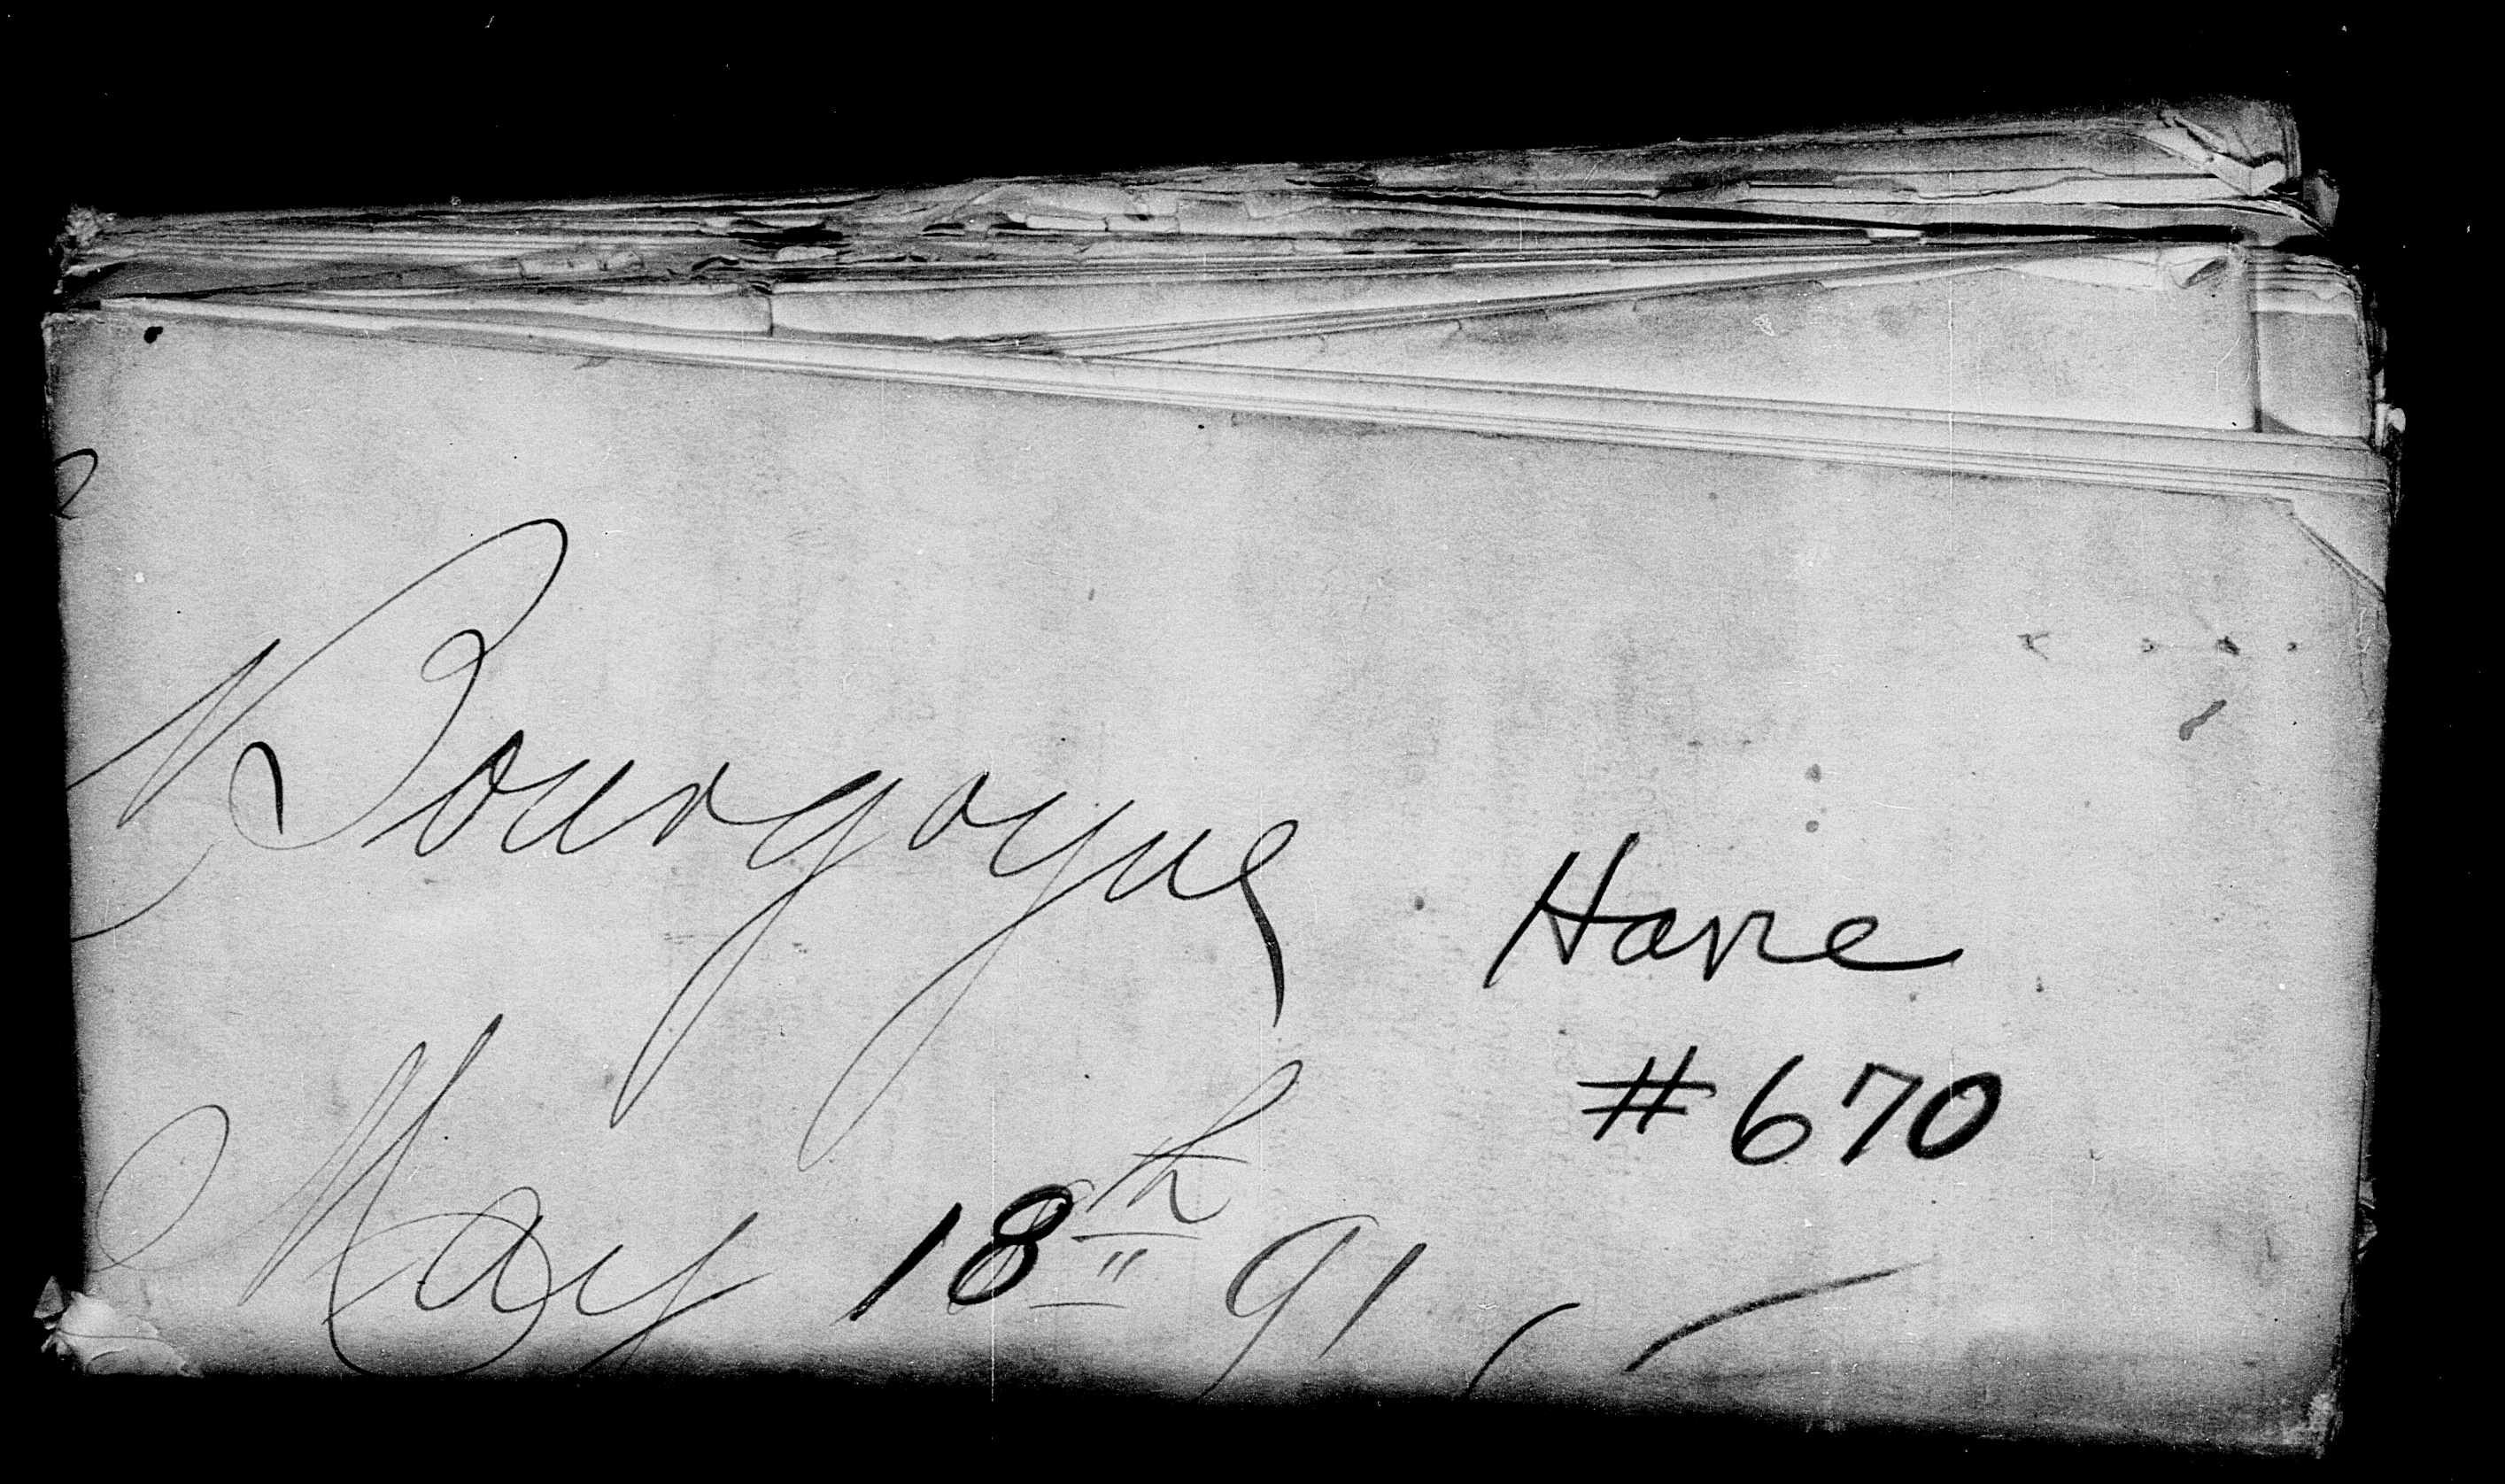 Bourgogne
Havre
#670
May 18th 91